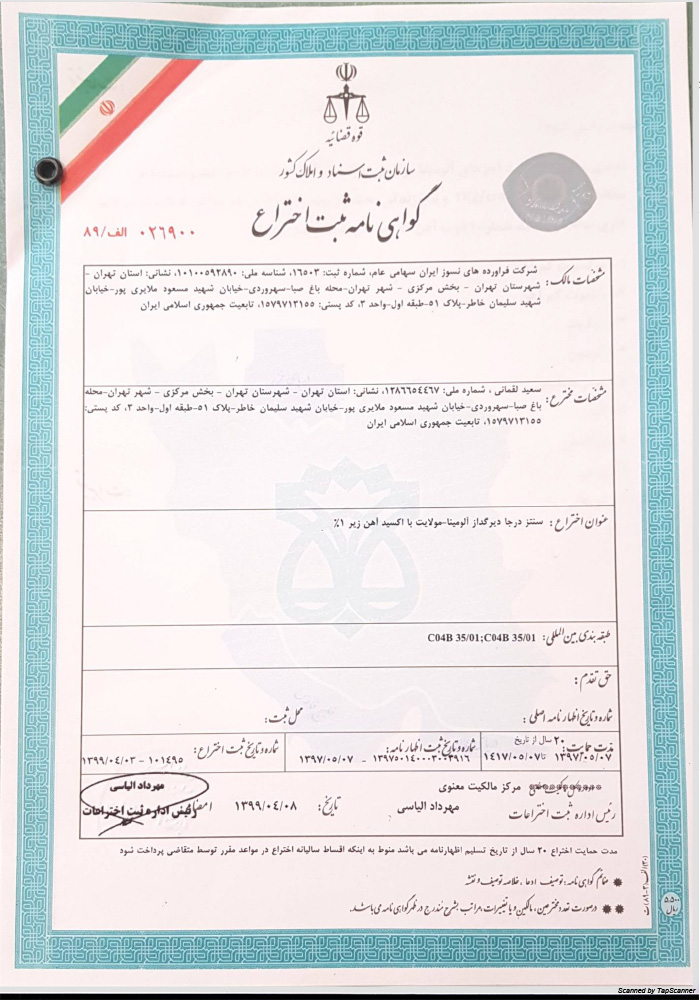 قوه قضائیه
سازمان ثبت اسناد و املاک کشور
گواهی نامه ثبت اختراع
۰۲۶۹۰۰ الف/۸۹
مشخصات مالک: شرکت فراورده های نسوز ایران سهامی عام، شماره ثبت: ۱۶۵۰۳، شناسه ملی: ۱۰۱۰۰۵۹۲۸۹۰، نشانی: استان تهران -
شهرستان تهران - بخش مرکزی - شهر تهران-محله باغ صبا-سهروردی-خیابان شهید مسعود ملایری پور-خیابان
شهید سلیمان خاطر-پلاک ۵۱-طبقه اول-واحد ۳، کد پستی: ۱۵۷۹۷۱۳۱۵۵، تابعیت جمهوری اسلامی ایران
مشخصات مخترع: سعید لقمانی ، شماره ملی: ۱۲۸۶۶۵۴۴۶۷، نشانی: استان تهران - شهرستان تهران - بخش مرکزی - شهر تهران-محله
باغ صبا-سهروردی-خیابان شهید مسعود ملایری پور-خیابان شهید سلیمان خاطر-پلاک ۵۱-طبقه اول-واحد ۳، کد پستی:
۱۵۷۹۷۱۳۱۵۵، تابعیت جمهوری اسلامی ایران
عنوان اختراع: سنتز درجا دیرگداز آلومینا-مولایت با اکسید آهن زیر ۱%
طبقه بندی بین المللی: C04B 35/01;C04B 35/01
حق تقدم:
شماره و تاریخ اظهارنامه اصلی: محل ثبت:
مدت حمایت: ۲۰ سال از تاریخ شماره و تاریخ ثبت اظهارنامه: شماره و تاریخ ثبت اختراع:
۱۳۹۷/۰۵/۰۷ تا ۱۴۱۷/۰۵/۰۷ ۱۳۹۷۵۰۱۴۰۰۰۳۰۰۳۹۱۶ - ۱۳۹۷/۰۵/۰۷ ۱۰۱۴۹۵ - ۱۳۹۹/۰۴/۰۳
مرکز مالکیت معنوی
رئیس اداره ثبت اختراعات مهرداد الیاسی تاریخ: ۱۳۹۹/۰۴/۰۸ امضاء
مهرداد الیاسی
رئیس اداره ثبت اختراعات
مدت حمایت اختراع ۲۰ سال از تاریخ تسلیم اظهارنامه می باشد منوط به اینکه اقساط سالیانه اختراع در مواعد مقرر توسط متقاضی پرداخت شود
❋ ضمائم گواهی نامه: توصیف، ادعا، خلاصه توصیف و نقشه
❋ ❋ در صورت تعدد مخترعین، مالکین و یا تغییرات، مراتب بشرح مندرج در ظهر گواهی نامه می باشد.
۵۵۰۰
ریال
Scanned by TapScanner